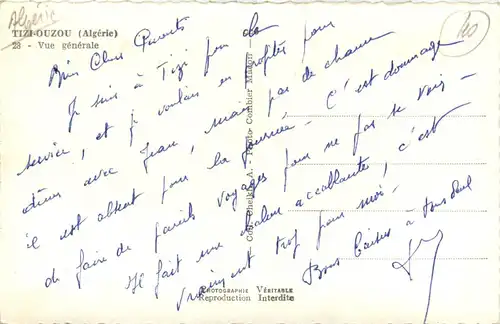 Algérie
TIZI-OUZOU (Algérie)
23 - Vue générale
40
Bien Chers Parents
Je suis à Tizi pour le
service, et je voulais en profiter pour
dîner avec Jean, mais pas de chance
il est absent pour la journée - C'est dommage
de faire de pareils voyages pour ne pas se voir -
Il fait une chaleur accablante, c'est
vraiment trop pour moi -
Bons baisers à tous deux
Combier Macon
PHOTOGRAPHIE VÉRITABLE
Reproduction Interdite